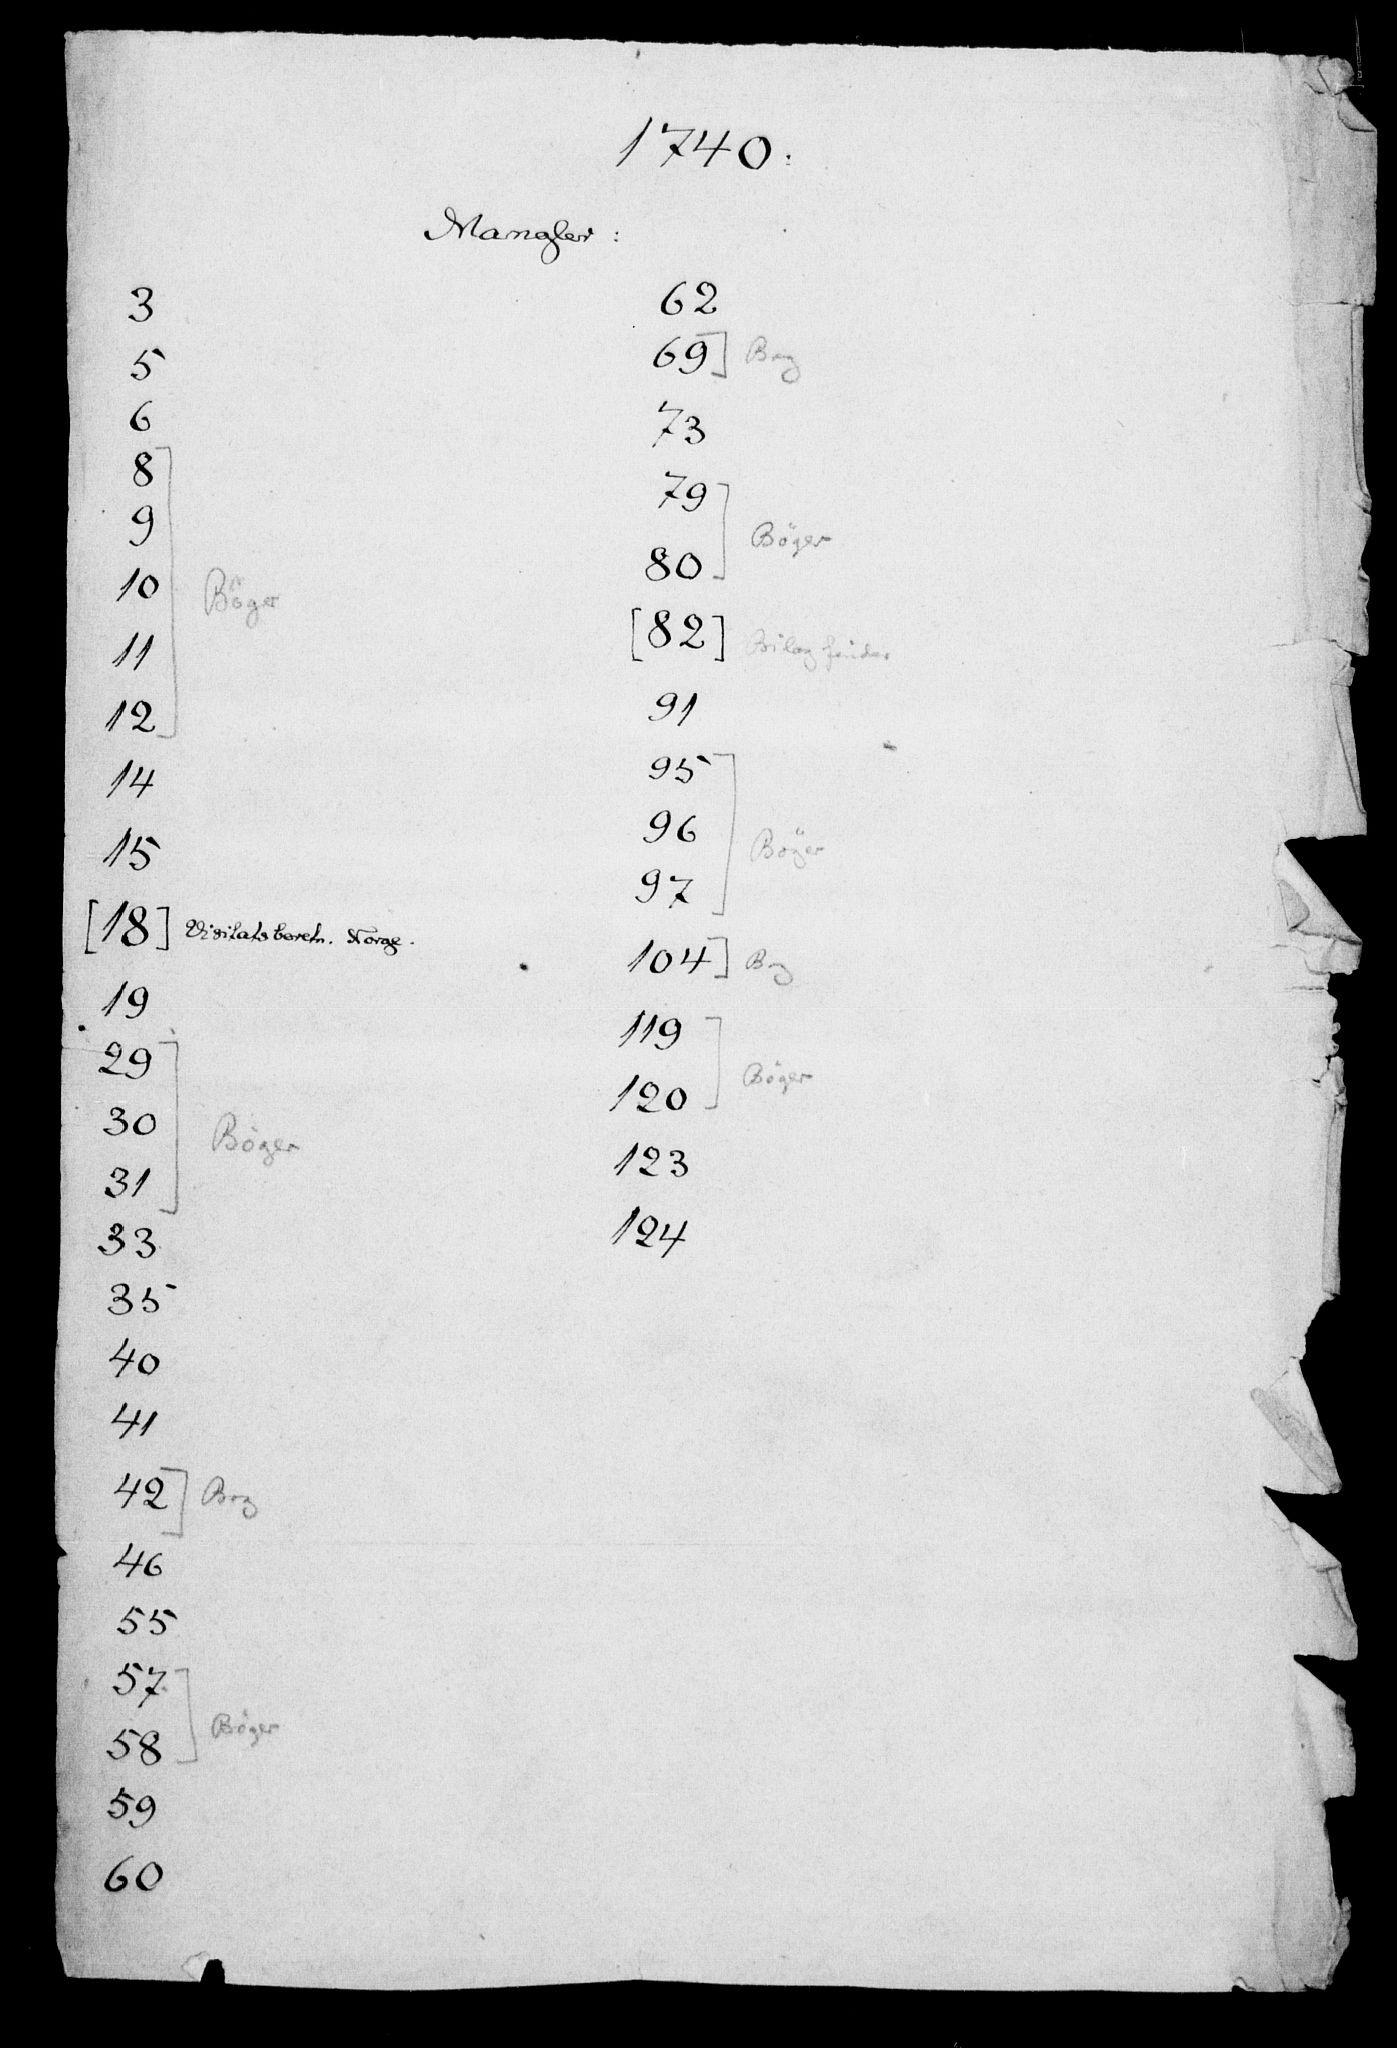 1740.
Mangler:
3
5
6
8
9
10 Böger
11
12
14
15
[18] Visitatsberetn. Norge.
19
29
30 Böger
31
33
35
40
41
42] Bog
46
55
57
58 Böger
59
60
62
69] Bog
73
79
80 Böger
[82] Bilag findes
91
95
96 Böger
97
104] Bog
119
120 Böger
123
124